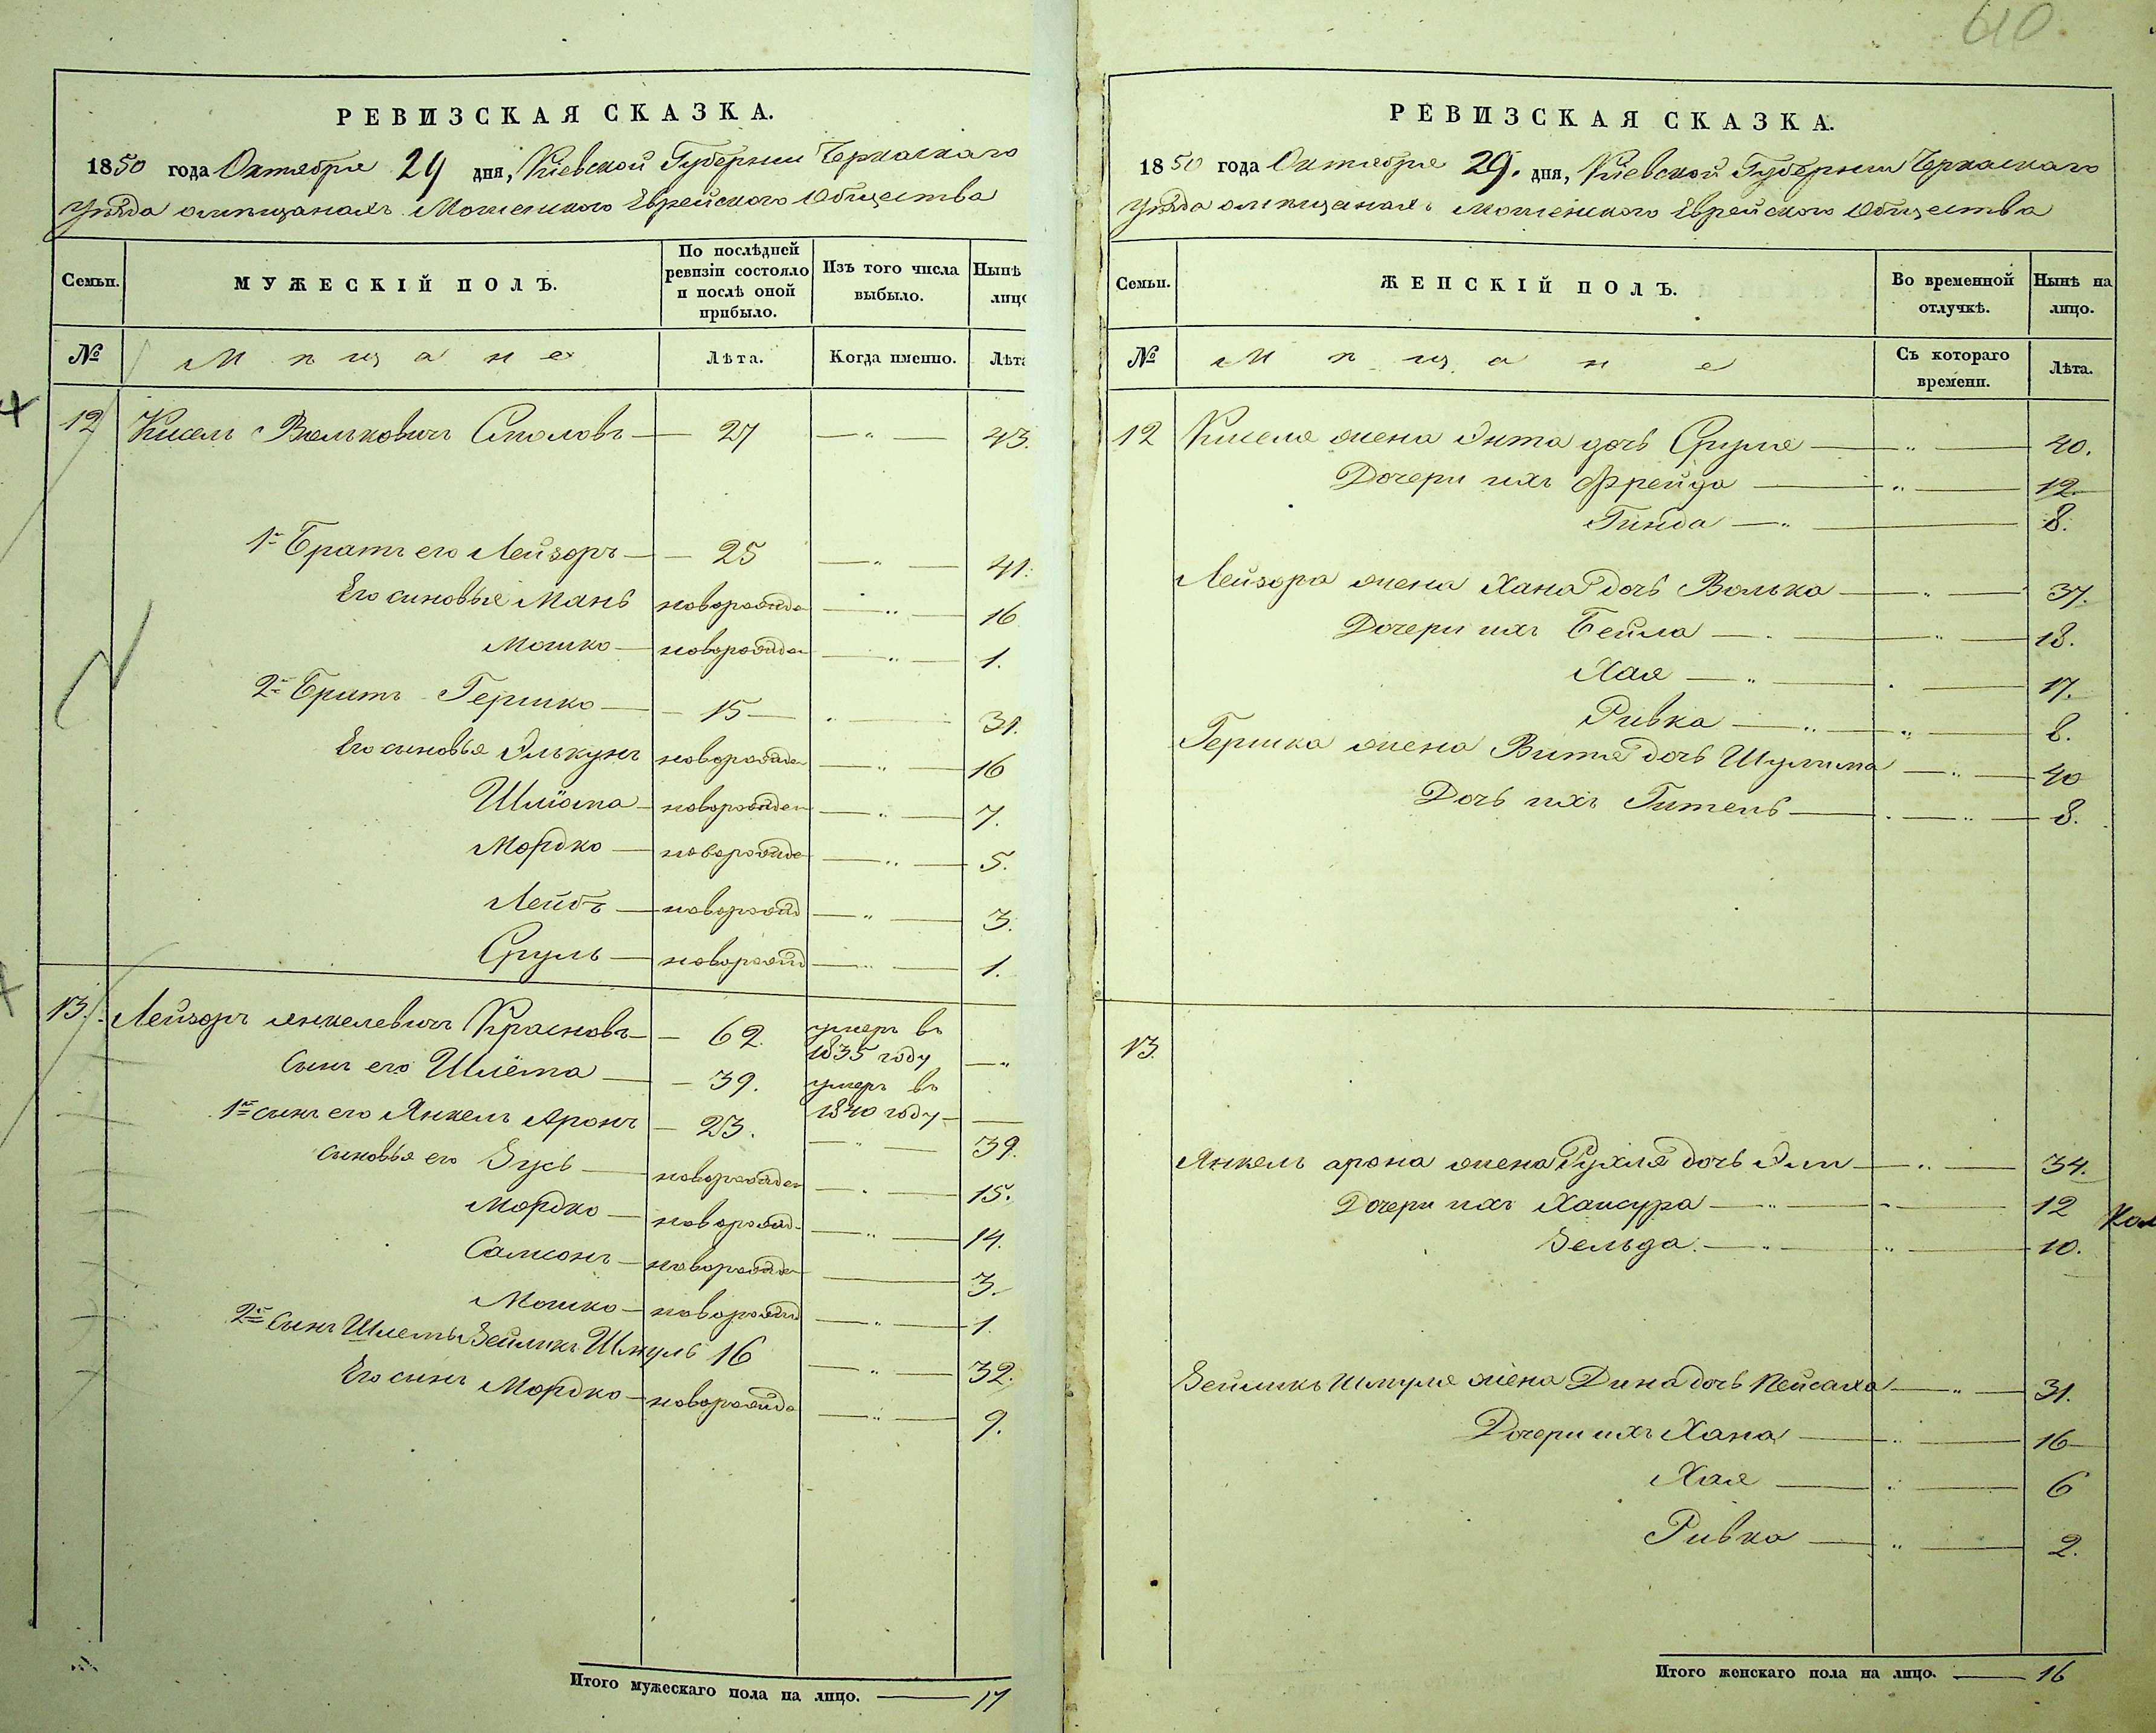 610
РЕВИЗСКАЯ СКАЗКА.
1850 года Октября 29 дня, Киевской Губернии Черкаскаго
уѣзда о мѣщанахъ Мошенскаго Еврейского Общества
Семьи.
МУЖЕСКІЙ ПОЛЪ.
По послѣдней ревизіи состояло и послѣ оной прибыло.
Изъ того числа выбыло.
Нынѣ
лицо
№
Мѣщане
Лѣта.
Когда именно.
Лѣта
12 Кисель Вольковичъ Смоловъ — 27 — " — 43.
1й Братъ его Лейзоръ — 25 — " — 41.
Его сыновья Мань новорожде — " — 16
Мошко — новорожден — " — 1.
2й Братъ Гершко — 15 — " — 31.
Его сыновья Элькунъ новорожден — " — 16
Шліома — новорожден — " — 7.
Мордко — новорожде — " — 5.
Лейбъ — новорожд — " — 3.
Сруль — новорожд — " — 1.
13. Лейзоръ Янкелевичъ Красновъ — 62. умеръ въ 1835 году — "
Сынъ его Шлёма — 39. умеръ въ 1840 году —
1й сынъ его Янкель Аронъ — 23. — " — 39.
Сыновья его Зусь — новорожден — " — 15.
Мордко — новорожд — " — 14.
Самсонъ — новорожден — 3.
Мошко — новорожд — " — 1.
2й Сынъ Шлемы Зейликъ Шмуль 16 — " — 32.
Его сынъ Мордко — новорожде — " — 9.
Итого мужескаго пола на лицо. — 17
РЕВИЗСКАЯ СКАЗКА.
1850 года Октября 29. дня, Киевской Губернии Черкаскаго
уѣзда о мѣщанахъ Мошенскаго Еврейского Общества
Семьи.
ЖЕНСКІЙ ПОЛЪ.
Во временной отлучкѣ.
Нынѣ на лицо.
№
Мѣщане
Съ котораго времени.
Лѣта.
12 Киселя жена Энта дочь Сруля — " — 40.
Дочери ихъ Фрейда — " — 12.
Гинда — " — 8.
Лейзора жена Хана дочь Волька — " — 37.
Дочери ихъ Бейла — " — 18.
Хая — " — 17.
Ривка — " — 8.
Гершка жена Витя дочь Шулима — " — 40
Дочь ихъ Гитель — " — 8.
13.
Янкель арона жена Рухля дочь Эли — " — 34.
Дочери ихъ Хансура — " — 12
Зельда. — " — 10.
Зейликъ Шмуля жена Дина дочь Пейсаха — " — 31.
Дочери ихъ Хана — " — 16
Хая — " — 6
Ривка — " — 2.
Итого женскаго пола на лицо. — 16